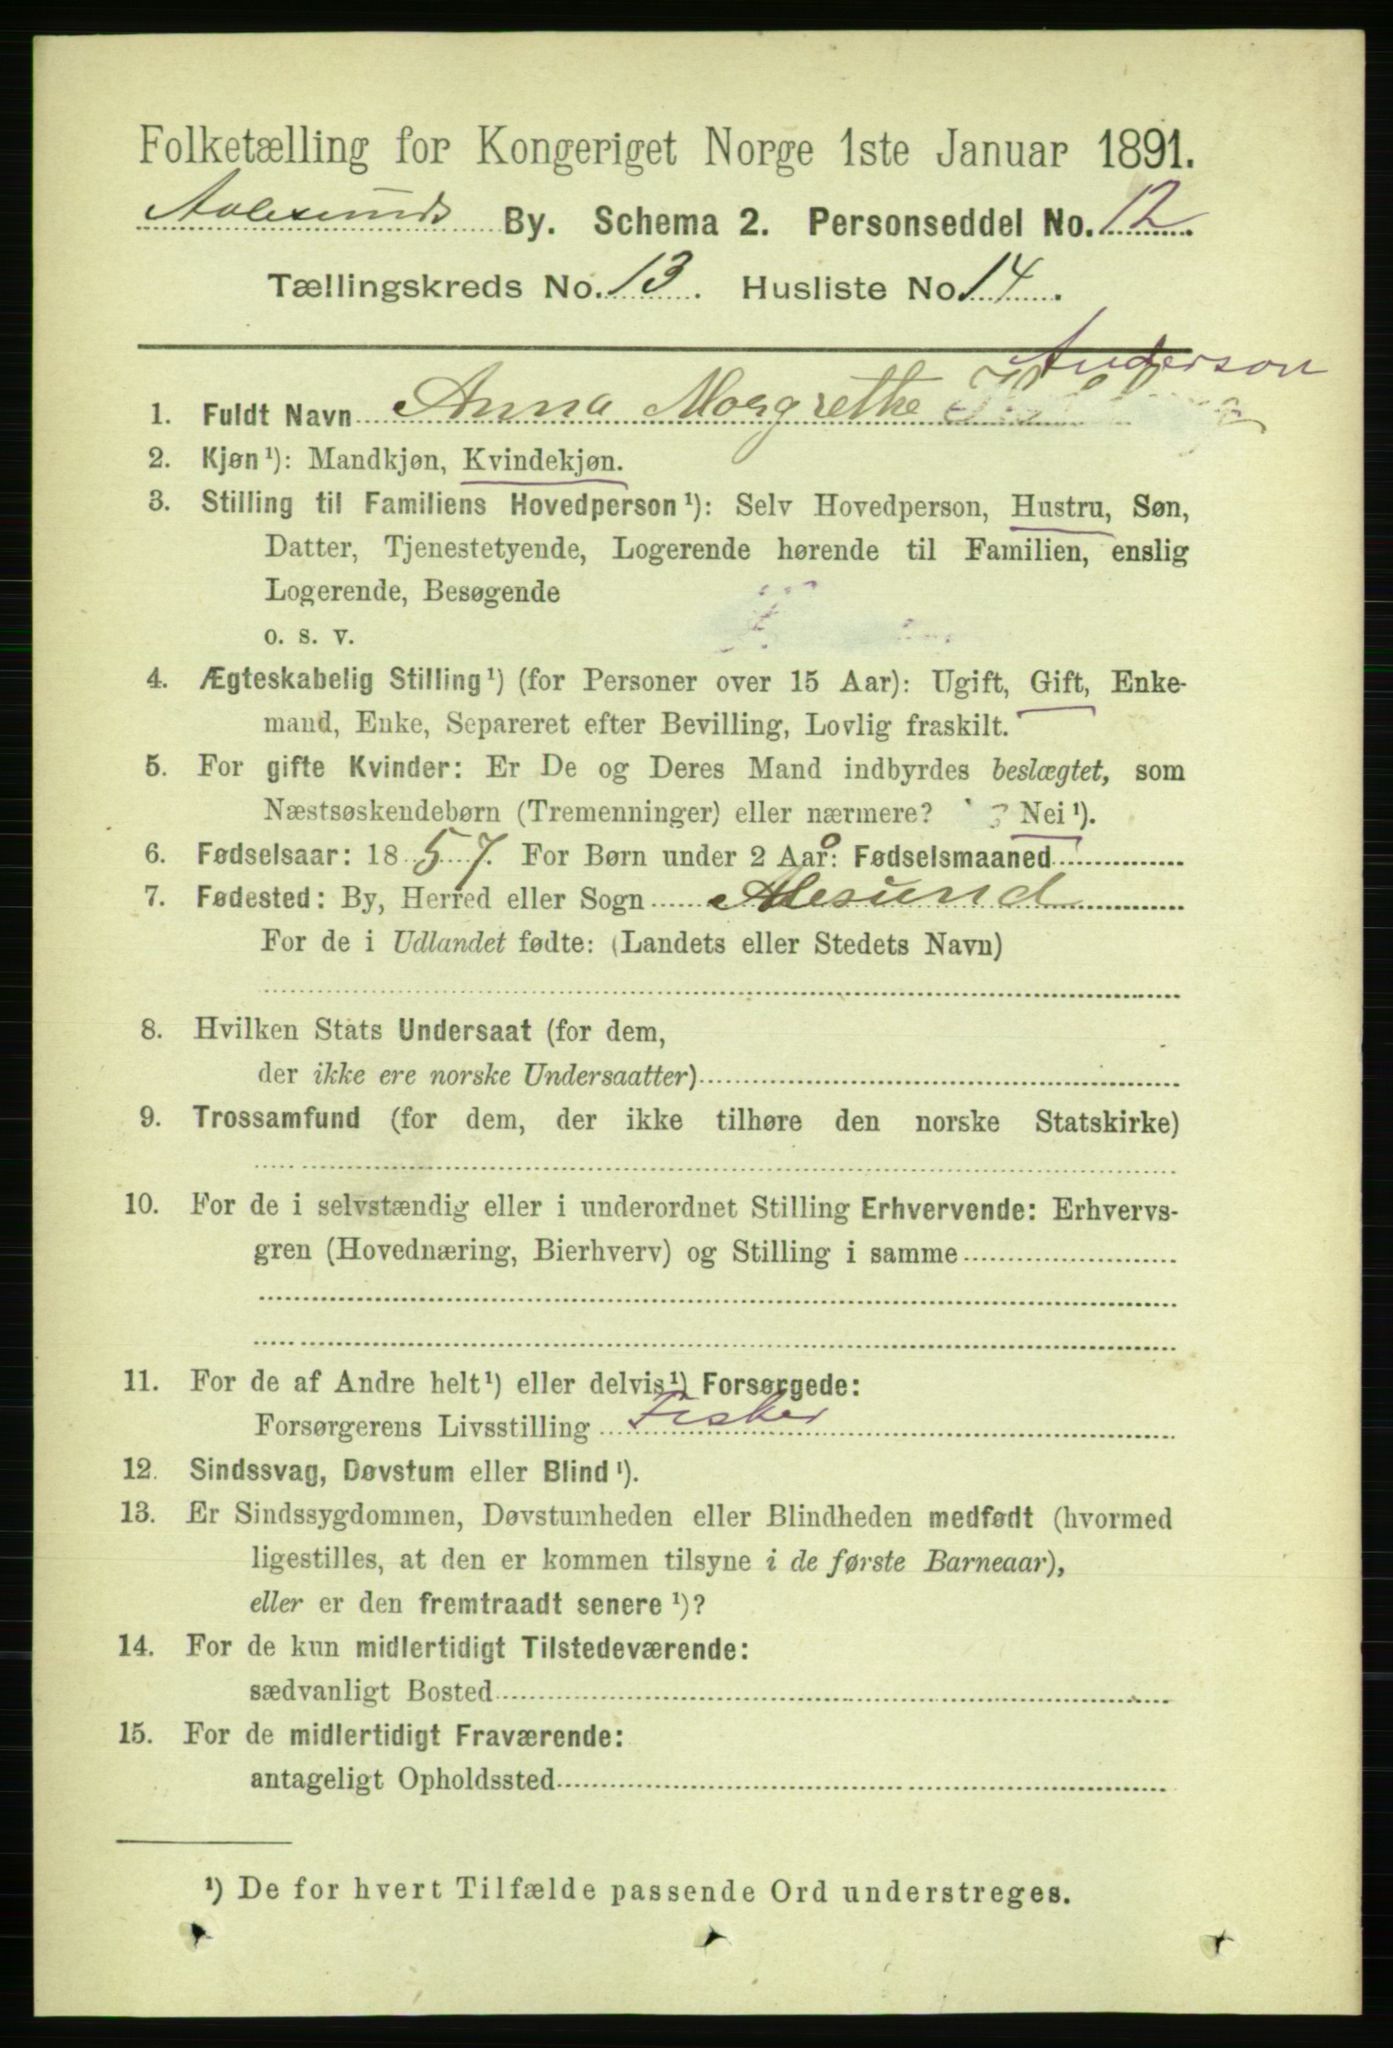 Folketælling for Kongeriget Norge 1ste Januar 1891.
Aalesunds By. Schema 2. Personseddel No. 12
Tællingskreds No. 13. Husliste No 14.
Anderson
1. Fuldt Navn Anna Margrethe
2. Kjøn¹): Mandkjøn, Kvindekjøn.
3. Stilling til Familiens Hovedperson¹): Selv Hovedperson, Hustru, Søn,
Datter, Tjenestetyende, Logerende hørende til Familien, enslig
Logerende, Besøgende
o. s. v.
4. Ægteskabelig Stilling¹) (for Personer over 15 Aar): Ugift, Gift, Enke-
mand, Enke, Separeret efter Bevilling, Lovlig fraskilt.
5. For gifte Kvinder: Er De og Deres Mand indbyrdes beslægtet, som
Næstsøskendebørn (Tremenninger) eller nærmere? Nei¹).
6. Fødselsaar: 1857. For Børn under 2 Aar: Fødselsmaaned
7. Fødested: By, Herred eller Sogn Ålesund
For de i Udlandet fødte: (Landets eller Stedets Navn)
8. Hvilken Stats Undersaat (for dem,
der ikke ere norske Undersaatter)
9. Trossamfund (for dem, der ikke tilhøre den norske Statskirke)
10. For de i selvstændig eller i underordnet Stilling Erhvervende: Erhvervs-
gren (Hovednæring, Bierhverv) og Stilling i samme
11. For de af Andre helt¹) eller delvis¹) Forsørgede:
Forsørgerens Livsstilling Fisker
12. Sindssvag, Døvstum eller Blind¹).
13. Er Sindssygdommen, Døvstumheden eller Blindheden medfødt (hvormed
ligestilles, at den er kommen tilsyne i de første Barneaar),
eller er den fremtraadt senere¹)?
14. For de kun midlertidigt Tilstedeværende:
sædvanligt Bosted
15. For de midlertidigt Fraværende:
antageligt Opholdssted
¹) De for hvert Tilfælde passende Ord understreges.